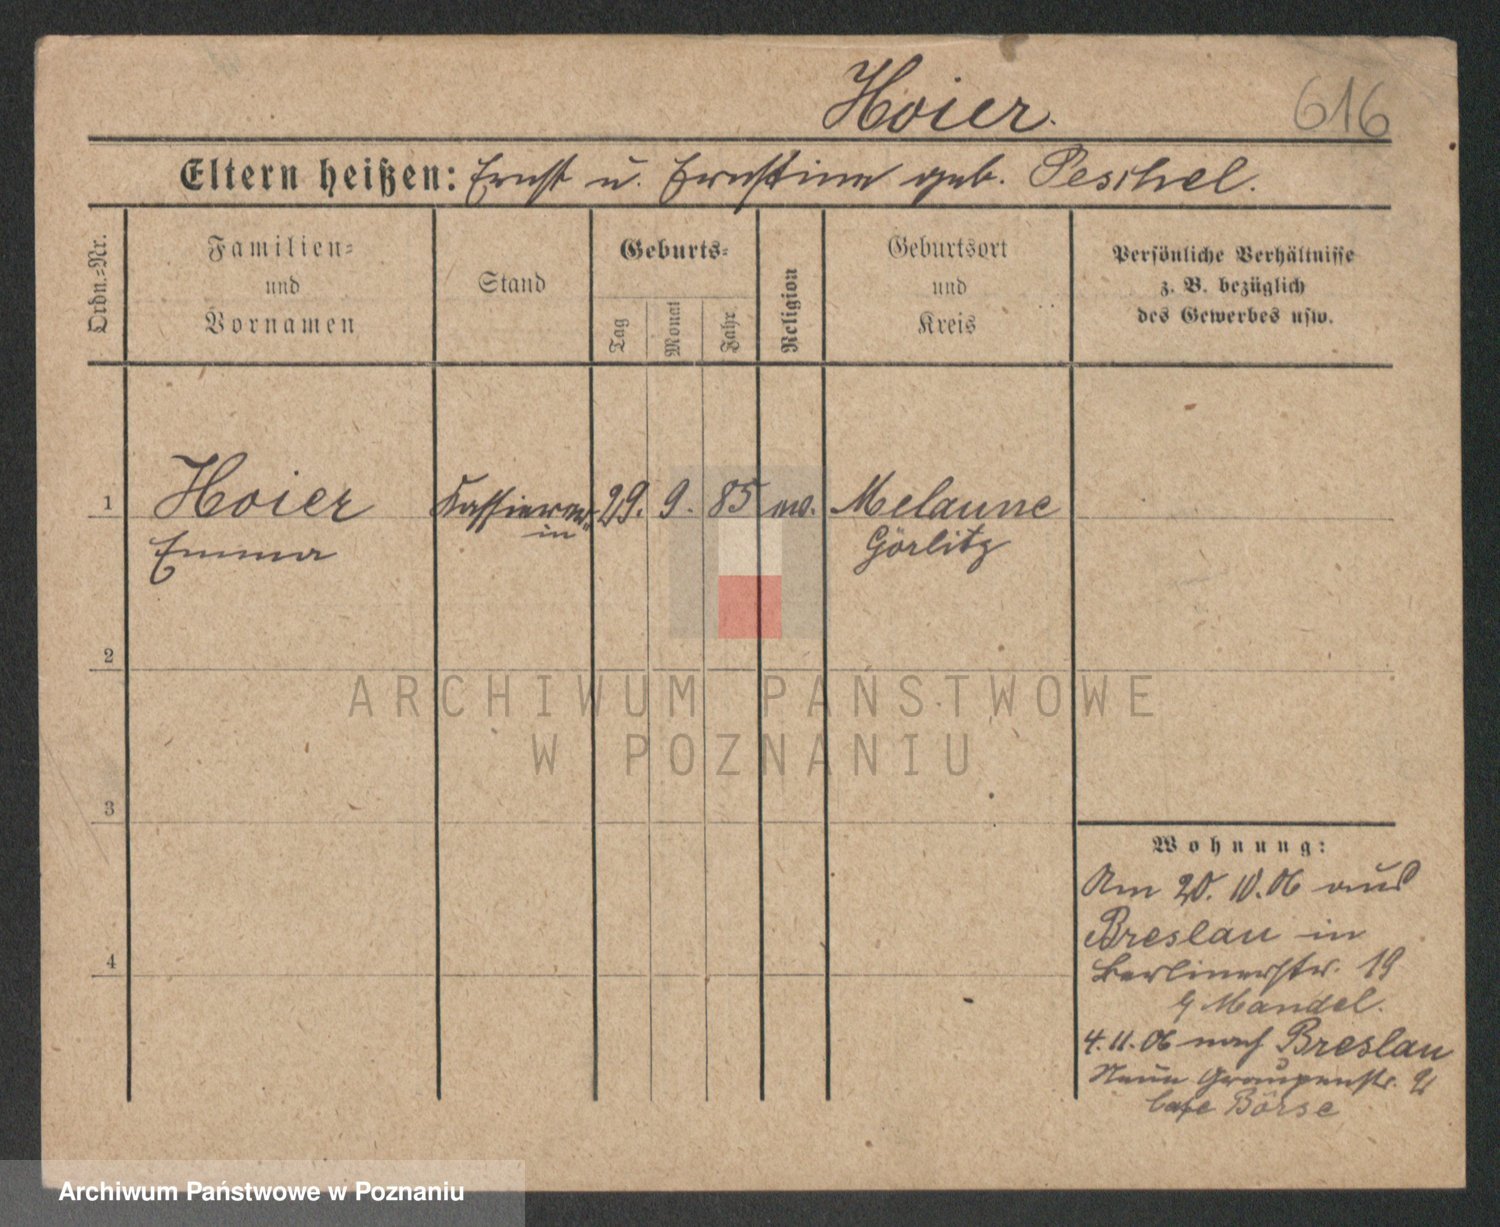 Hoier.
616
Eltern heißen: Ernst u. Ernstine geb. Peschel.
Ordn.=Nr.
Familien= und Vornamen
Stand
Geburts=
Tag
Monat
Jahr
Religion
Geburtsort und Kreis
Persönliche Verhältnisse
z. B. bezüglich
des Gewerbes usw.
1 Hoier Kassierer= 29. 9. 85 ev. Melaune
Emma in Görlitz
2
ARCHIWUM PAŃSTWOWE
W POZNANIU
3
Wohnung:
Am 20. 10. 06 aus
Breslau in
4 Berlinerstr. 19
Mandel.
4. 11. 06 nach Breslau
Neue Graupenstr.
Cafe Börse
Archiwum Państwowe w Poznaniu